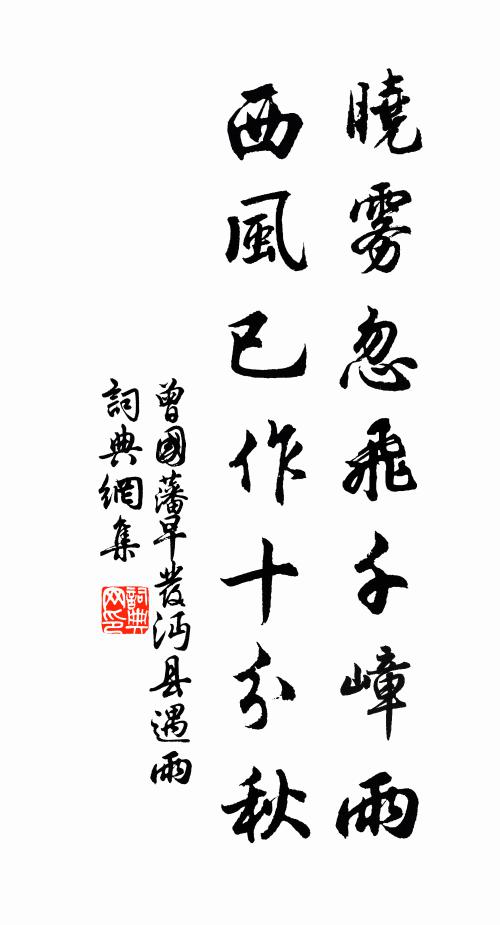 曉雾忽飛千嶂雨
西風已作十分秋
曾國藩早發沔县遇雨
詞典網集
詞典
网印